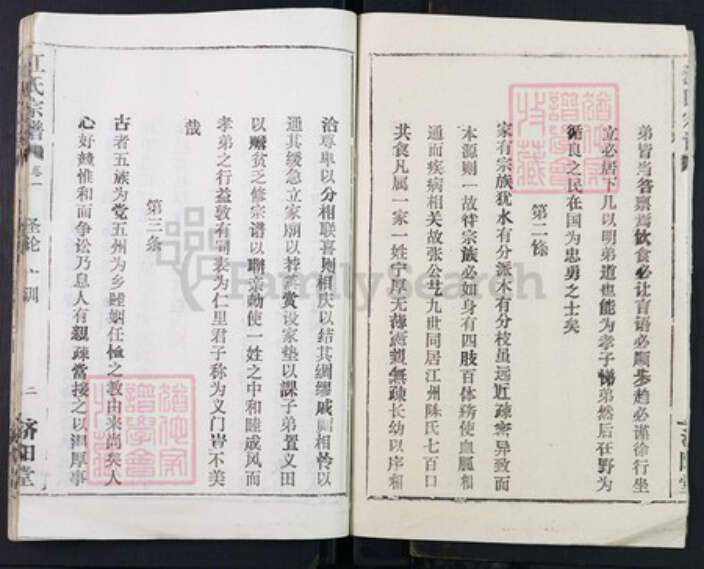 弟皆当各禀焉饮食必让言语必顺步趋必谨徐行坐
立必居下凡以明弟道也能为孝子悌弟然后在野为
循良之民在国为忠勇之士矣
第二條
家有宗族犹水有分派木有分枝虽远近疎密异致而
本源则一故待宗族必如身有四肢百体务使血脉相
通而疾病相关故张公艺九世同居江州陈氏七百口
共食凡属一家一姓宁厚无薄宁親無疎长幼以序相
洽尊卑以分相联喜则相庆以结其绸缪戚则相怜以
通其缓急立家庙以荐烝赏设家塾以課子弟置义田
以赡贫乏修宗谱以聯亲勗使一姓之中和睦成风而
孝弟之行益敦有司表为仁里君子称为义门岂不美
哉
第三条
古者五族为党五州为乡睦姻任恤之教由来尚矣人
心好競惟和而争讼乃息人有親疎當接之以溫厚事
江氏宗谱
卷一
圣谕广训
二
济阳堂
FamilySearch